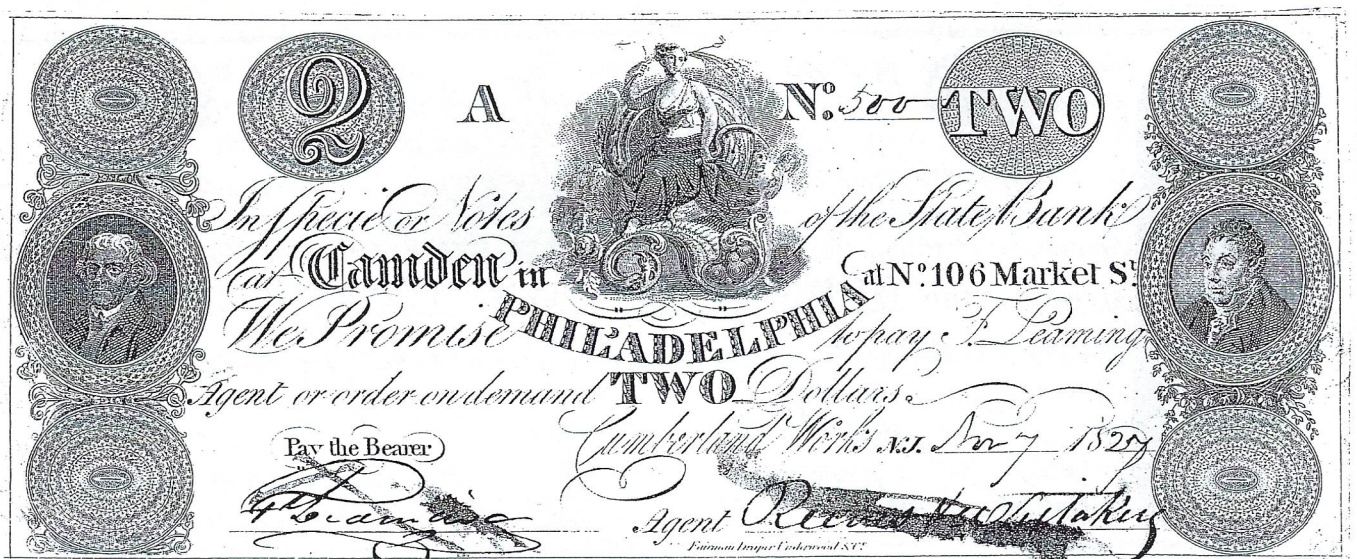 2 A Nº 500 TWO
In Specie or Notes of the State Bank
at Camden in at Nº 106 Market St
PHILADELPHIA
We Promise to pay F. Leaming
Agent or order on demand TWO Dollars.
Cumberland Works N.J. Nov 7 1829
Pay the Bearer
F Leaming
Agent Reeves & Whitaker
Fairman Draper Underwood & Co.